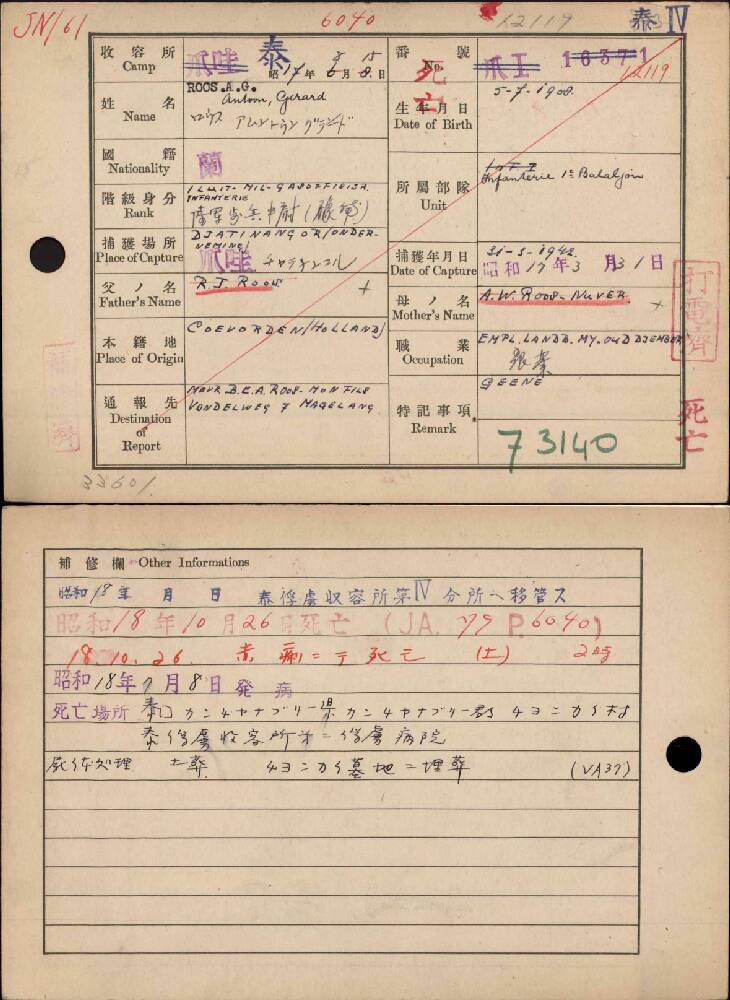 JN/61
6040
12119
泰 IV
收容所
Camp
爪哇 泰
昭17年 8月 15日
番號
No.
爪王 16371
12119
死亡
姓名
Name
ROOS.A.G.
Antoon, Gerard
生年月日
Date of Birth
5-7-1908
國籍
Nationality
蘭
階級身分
Rank
INFANTERIE
陸軍歩兵中尉
所屬部隊
Unit
Infanterie 1e Bataljon
捕獲場所
Place of Capture
DJATINANGOR/ONDER-
NEMING/
爪哇 チャチナンゴル
捕獲年月日
Date of Capture
31-3-1942
昭和17年3月31日
父ノ名
Father's Name
R.J. ROOS
母ノ名
Mother's Name
A.W. ROOS-NUVER
本籍地
Place of Origin
COEVORDEN/HOLLAND/
職業
Occupation
EMPL. LANDB. MY. OUD DJEMBER
通報先
Destination
of
Report
MEVR. B.E.A. ROOS-MONFILS
VONDELWEG 7 MAGELANG
特記事項
Remark
GEENE
73140
打電濟
死亡
33601
補修欄 Other Informations
昭和18年 月 日 泰俘虜収容所第IV分所ヘ移管ス
昭和18年10月26日死亡 (JA. 79 P.6040)
18.10.26. 赤痢ニテ死亡 (土) 2時
昭和18年7月8日発病
死亡場所 泰国カンチャナブリー県カンチャナブリー郡チヨンカイ村
泰俘虜收容所第二俘虜病院
死体処理 土葬 チヨンカイ墓地ニ埋葬 (VA37)